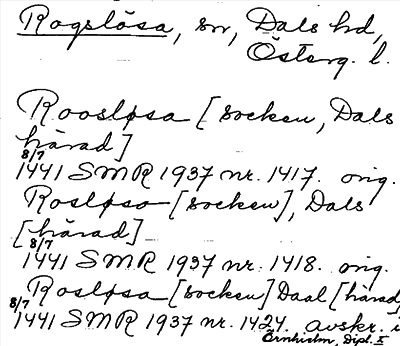 Rogslösa, sn, Dals hd,
Österg. l.
Roosløsa [socken, Dals
härad]
8/7
1441 SMR 1937 nr. 1417. orig.
Rosløsa [socken], Dals
[härad]
8/7
1441 SMR 1937 nr. 1418. orig.
Rosløsa [socken] Daal [härad]
8/7
1441 SMR 1937 nr. 1424. avskr. i
Örnhielm, Dipl. I